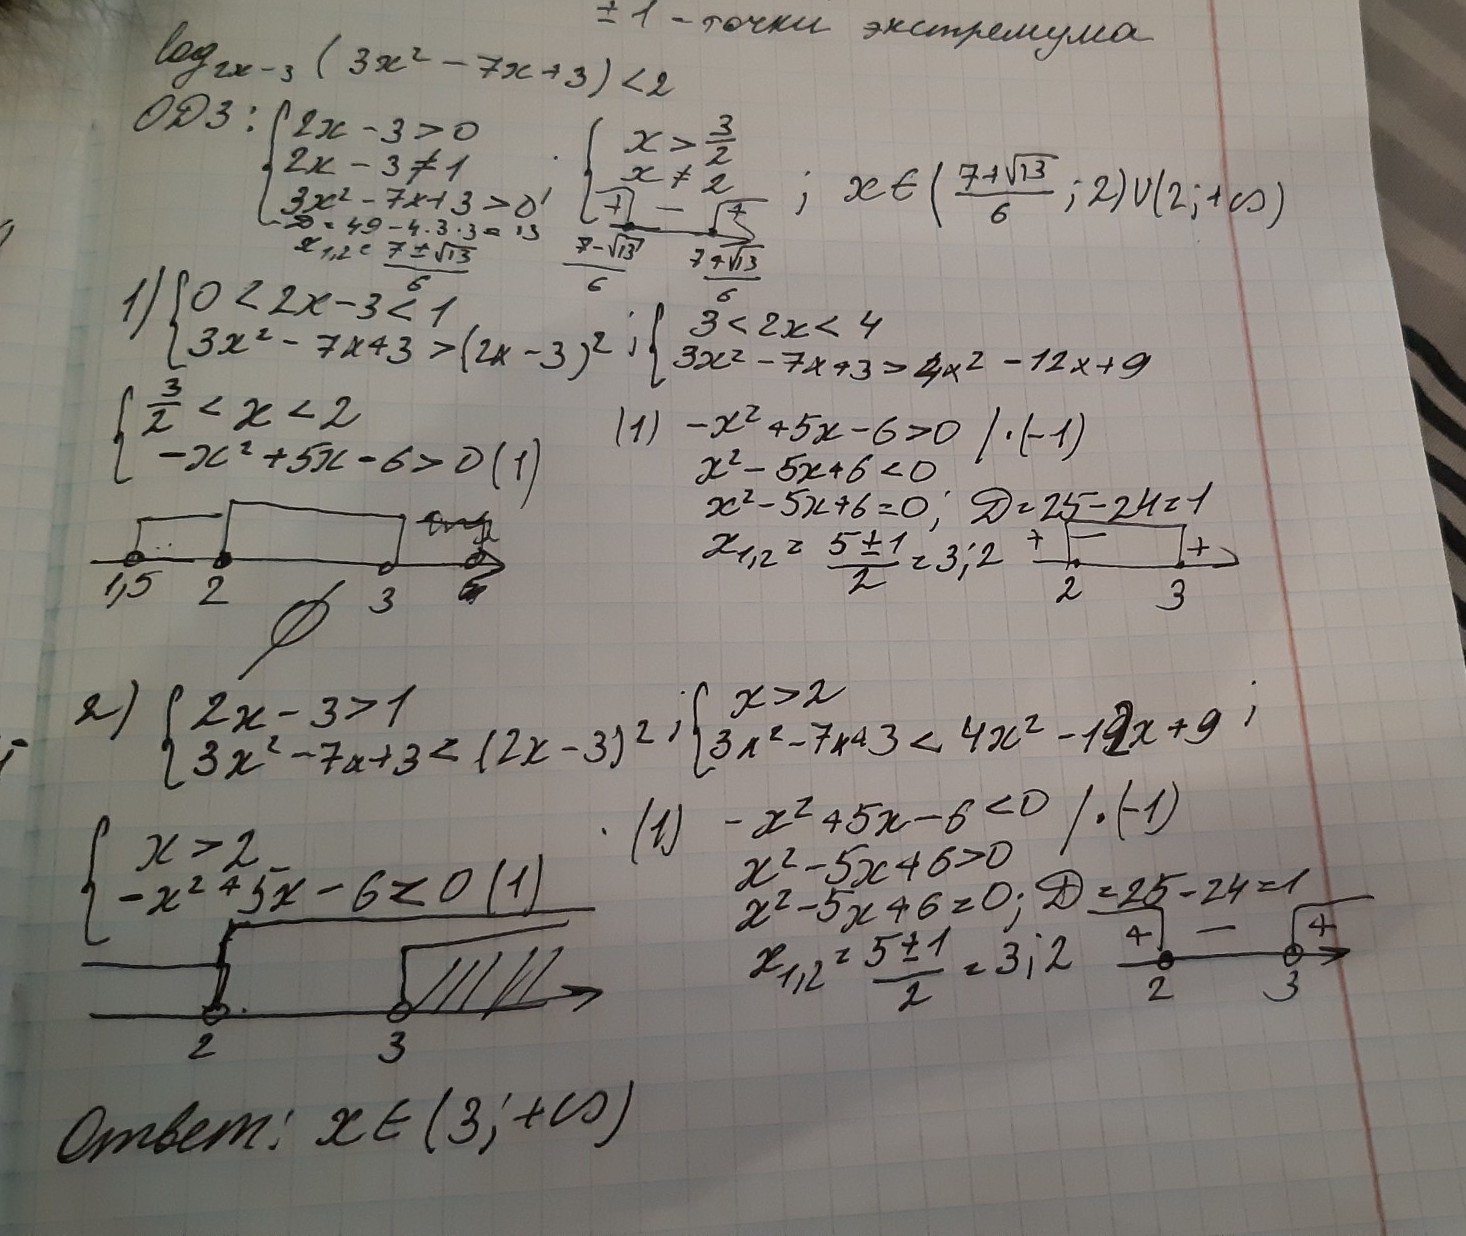 ± 1 - точки экстремума
log₂ₓ₋₃ (3x² - 7x + 3) < 2
ОДЗ: { 2x - 3 > 0 { x > 3/2
2x - 3 ≠ 1 x ≠ 2 ; x ∈ ((7+√13)/6 ; 2) ∪ (2; +∞)
3x² - 7x + 3 > 0 + - +
D = 49 - 4·3·3 = 13 (7-√13)/6 (7+√13)/6
x₁,₂ = (7 ± √13)/6
1) { 0 < 2x - 3 < 1 ; { 3 < 2x < 4
3x² - 7x + 3 > (2x - 3)² 3x² - 7x + 3 > 4x² - 12x + 9
{ 3/2 < x < 2
-x² + 5x - 6 > 0 (1)
(1) -x² + 5x - 6 > 0 / ·(-1)
x² - 5x + 6 < 0
x² - 5x + 6 = 0; D = 25 - 24 = 1
x₁,₂ = (5 ± 1)/2 = 3; 2 + - +
2 3
1,5 2 3
∅
2) { 2x - 3 > 1 ; { x > 2
3x² - 7x + 3 < (2x - 3)² 3x² - 7x + 3 < 4x² - 12x + 9 ;
{ x > 2
-x² + 5x - 6 < 0 (1)
(1) -x² + 5x - 6 < 0 / ·(-1)
x² - 5x + 6 > 0
x² - 5x + 6 = 0; D = 25 - 24 = 1
x₁,₂ = (5 ± 1)/2 = 3; 2 + - +
2 3
2 3
Ответ: x ∈ (3; +∞)